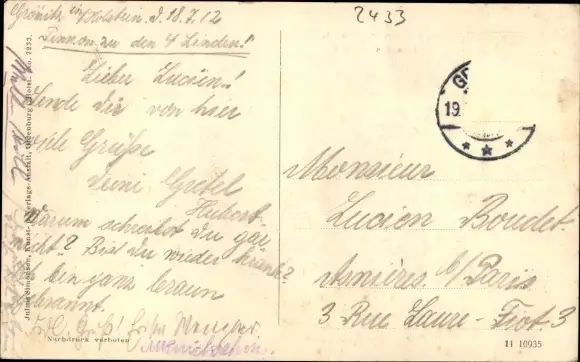 Grömitz in Holstein, d. 18.7.12
Pension zu den 4 Linden!
Lieber Lucien!
Sende dir von hier
viele Grüße
Deine Gretel
Hubert.
Warum schreibst du gar
nicht? Bist du wieder krank?
bin ganz braun
gebrannt.
2433
19.
Monsieur
Lucien Boudet.
Asnières. b/Paris
3 Rue Laure-Fiot. 3
Julius Simonsen, Kunst-Verlags-Anstalt, Oldenburg i. Holst. No. 7233.
Nachdruck verboten
11 10935